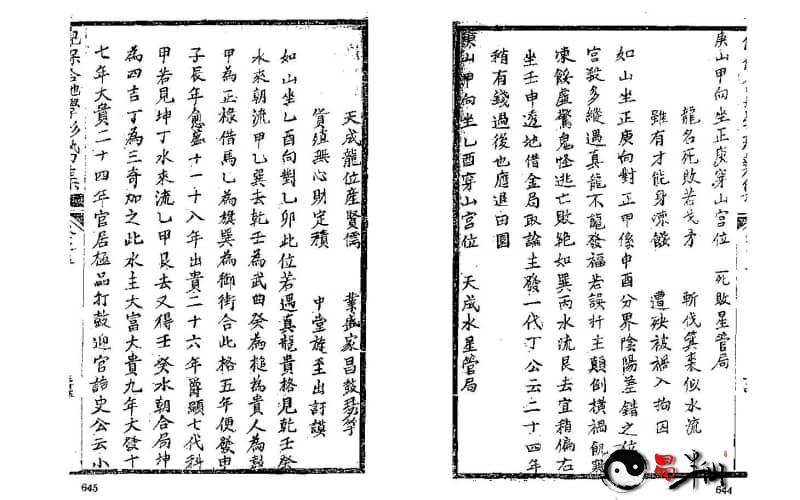 庚山甲向坐正庚穿山宮位 死敗星管局
龍名死敗若戈矛 斬伐箕裘似水流
雖有才能身凍餒 遭殃被禍入拘囚
如山坐正庚向對正甲係申酉分界陰陽差錯之位
宮殺多縱遇真龍不能發福若誤扦主顛倒橫禍飢寒
凍餒虛驚鬼怪逃亡敗絕如巽丙水流艮去宜稍偏右
坐壬申透地借金局取論主發一代丁公云二十四年
稍有錢過後也應退田園
庚山甲向坐乙酉穿山宮位 天成水星管局
644
天成龍位產賢儒 業盛家昌鼓瑟竽
貨殖無心財定積 中堂旄至出訂謨
如山坐乙酉向對乙卯此位若遇真龍貴格見乾壬癸
水來朝流甲乙巽去乾壬為武曲癸為槌為貴人為鼓
甲為正祿借馬乙為旗巽為御街合此格五年便發申
子辰年愈盛十一十八年出貴二十六年爵顯七代科
甲若見坤丁水來流乙甲艮去又得壬癸水朝合局坤
為四吉丁為三奇加之此水主大富大貴九年大發十
七年大貴二十四年官居極品打鼓迎官誥史公云小
645